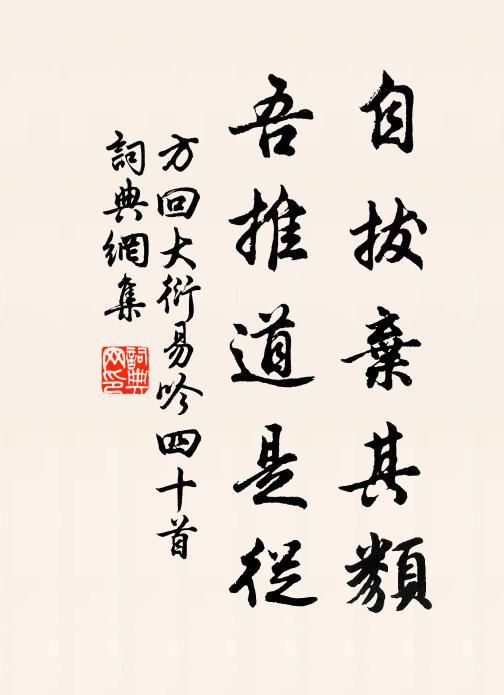 自拔棄其類
吾推道是從
方回大衍易吟四十首
詞典網集
詞典網印